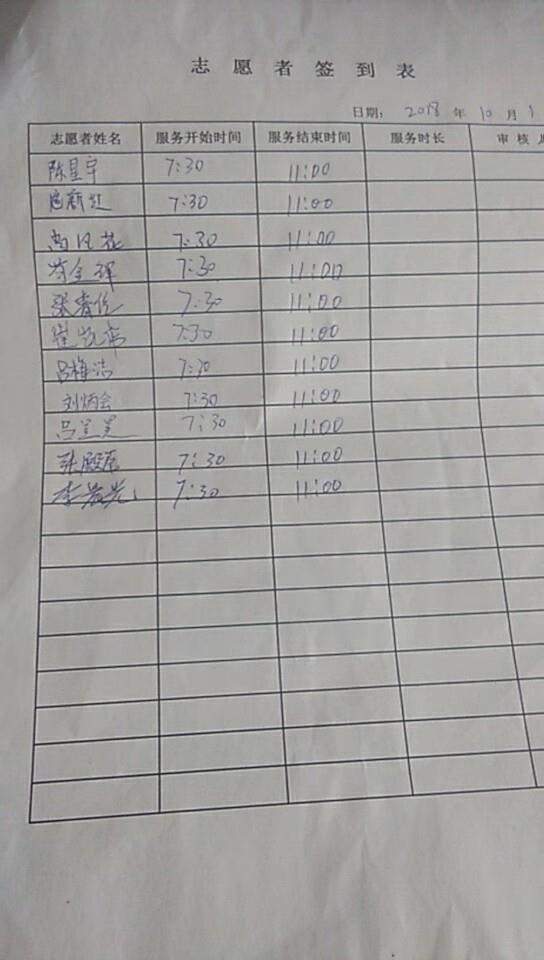 志愿者签到表
日期: 2018 年 10 月 1
志愿者姓名 服务开始时间 服务结束时间 服务时长 审核
陈星宇 7:30 11:00
7:30 11:00
7:30 11:00
7:30 11:00
张 7:30 11:00
崔凯 7:30 11:00
吕梅洁 7:30 11:00
刘炳会 7:30 11:00
吕 7:30 11:00
张殿辰 7:30 11:00
李 7:30 11:00